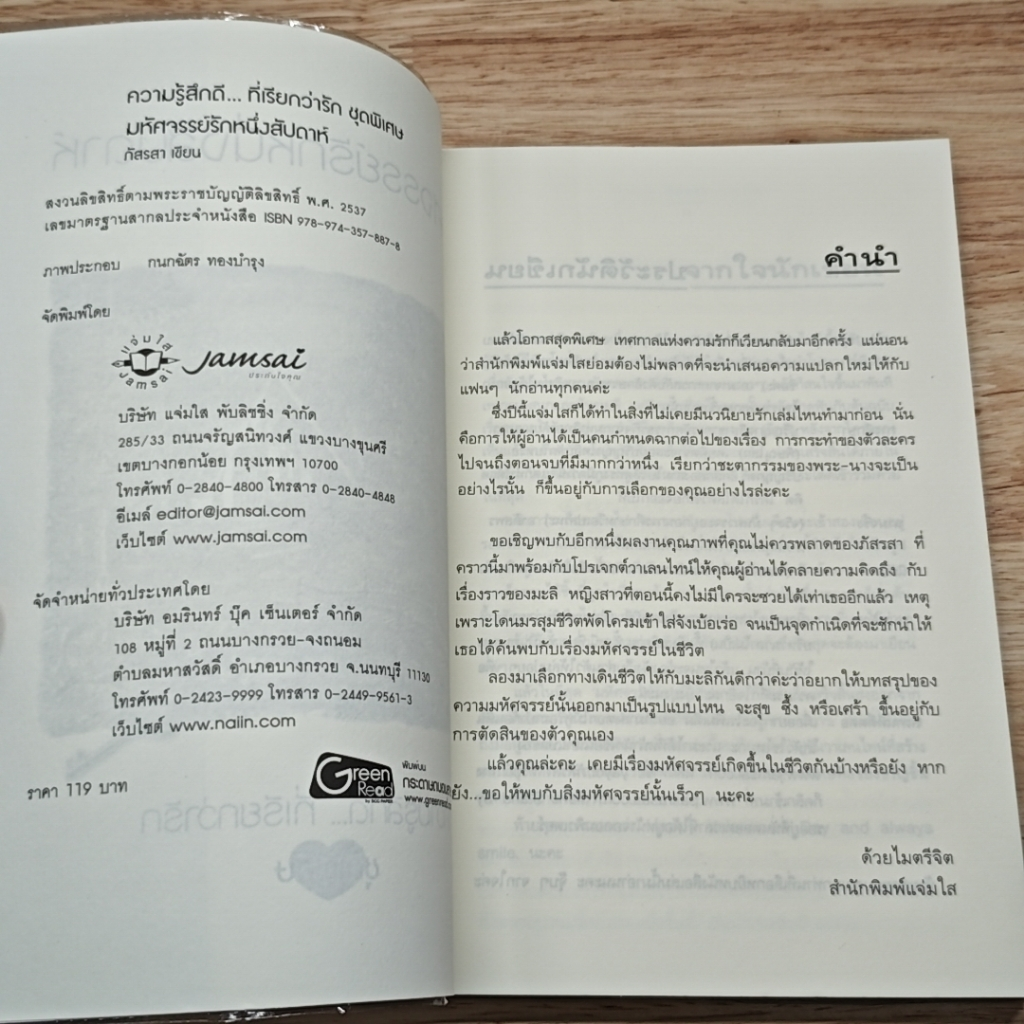 ความรู้สึกดี... ที่เรียกว่ารัก ชุดพิเศษ
มหัศจรรย์รักหนึ่งสัปดาห์
ภัสรสา เขียน
สงวนลิขสิทธิ์ตามพระราชบัญญัติลิขสิทธิ์ พ.ศ. 2537
เลขมาตรฐานสากลประจำหนังสือ ISBN 978-974-357-887-8
ภาพประกอบ กนกฉัตร ทองบำรุง
จัดพิมพ์โดย
แจ่มใส
Jamsai
Jamsai
ประทับใจคุณ
บริษัท แจ่มใส พับลิชชิ่ง จำกัด
285/33 ถนนจรัญสนิทวงศ์ แขวงบางขุนศรี
เขตบางกอกน้อย กรุงเทพฯ 10700
โทรศัพท์ 0-2840-4800 โทรสาร 0-2840-4848
อีเมล์ editor@jamsai.com
เว็บไซต์ www.jamsai.com
จัดจำหน่ายทั่วประเทศโดย
บริษัท อมรินทร์ บุ๊ค เซ็นเตอร์ จำกัด
108 หมู่ที่ 2 ถนนบางกรวย-จงถนอม
ตำบลมหาสวัสดิ์ อำเภอบางกรวย จ.นนทบุรี 11130
โทรศัพท์ 0-2423-9999 โทรสาร 0-2449-9561-3
เว็บไซต์ www.naiin.com
ราคา 119 บาท
Green
Read
พิมพ์บน
กระดาษถนอมสาย
www.greenread
คำนำ
แล้วโอกาสสุดพิเศษ เทศกาลแห่งความรักก็เวียนกลับมาอีกครั้ง แน่นอน
ว่าสำนักพิมพ์แจ่มใสย่อมต้องไม่พลาดที่จะนำเสนอความแปลกใหม่ให้กับ
แฟนๆ นักอ่านทุกคนค่ะ
ซึ่งปีนี้แจ่มใสก็ได้ทำในสิ่งที่ไม่เคยมีนวนิยายรักเล่มไหนทำมาก่อน นั่น
คือการให้ผู้อ่านได้เป็นคนกำหนดฉากต่อไปของเรื่อง การกระทำของตัวละคร
ไปจนถึงตอนจบที่มีมากกว่าหนึ่ง เรียกว่าชะตากรรมของพระ-นางจะเป็น
อย่างไรนั้น ก็ขึ้นอยู่กับการเลือกของคุณอย่างไรล่ะคะ
ขอเชิญพบกับอีกหนึ่งผลงานคุณภาพที่คุณไม่ควรพลาดของภัสรสา ที่
คราวนี้มาพร้อมกับโปรเจกต์วาเลนไทน์ให้คุณผู้อ่านได้คลายความคิดถึง กับ
เรื่องราวของมะลิ หญิงสาวที่ตอนนี้คงไม่มีใครจะซวยได้เท่าเธออีกแล้ว เหตุ
เพราะโดนมรสุมชีวิตพัดโครมเข้าใส่จังเบ้อเร่อ จนเป็นจุดกำเนิดที่จะชักนำให้
เธอได้ค้นพบกับเรื่องมหัศจรรย์ในชีวิต
ลองมาเลือกทางเดินชีวิตให้กับมะลิกันดีกว่าค่ะว่าอยากให้บทสรุปของ
ความมหัศจรรย์นั้นออกมาเป็นรูปแบบไหน จะสุข ซึ้ง หรือเศร้า ขึ้นอยู่กับ
การตัดสินของตัวคุณเอง
แล้วคุณล่ะคะ เคยมีเรื่องมหัศจรรย์เกิดขึ้นในชีวิตกันบ้างหรือยัง หาก
ยัง...ขอให้พบกับสิ่งมหัศจรรย์นั้นเร็วๆ นะคะ
ด้วยไมตรีจิต
สำนักพิมพ์แจ่มใส